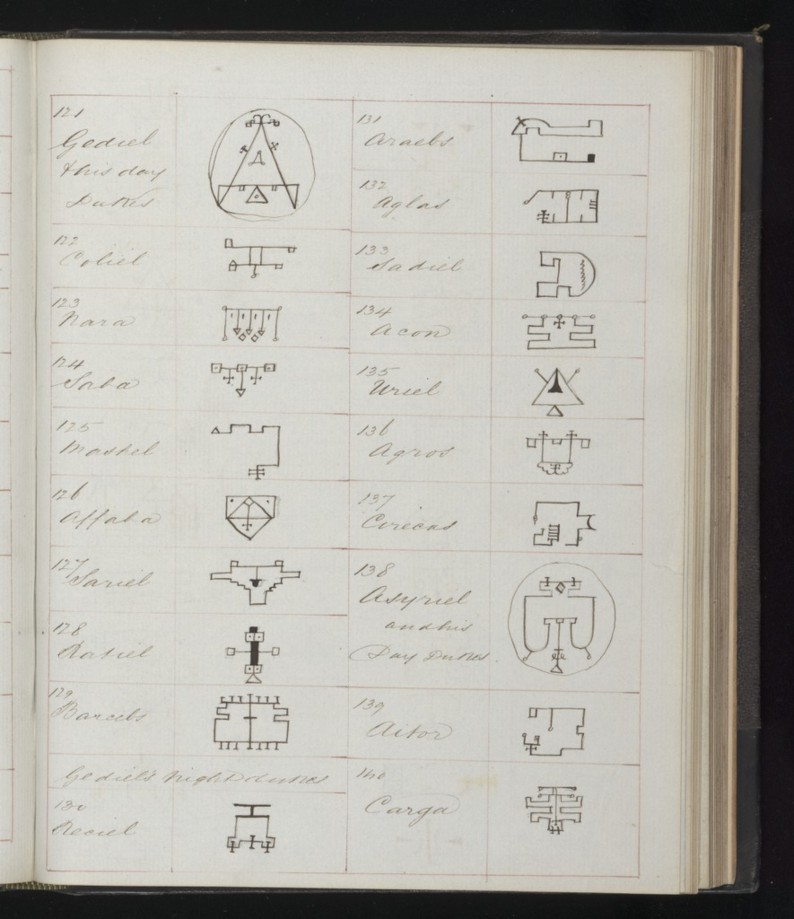 121
Gediel
& his day
Dukes
122
Coliel
123
Nara
124
Saba
125
Mashel
126
Affaba
127
Sariel
128
Ratiel
129
Barcebs
Gediel's Night dukes
130
Reciel
131
Araebs
132
Aglas
133
Sadiel
134
Acon
135
Uriel
136
Agros
137
Cirecas
138
Asyriel
and his
Day Dukes
139
Aitor
140
Carga